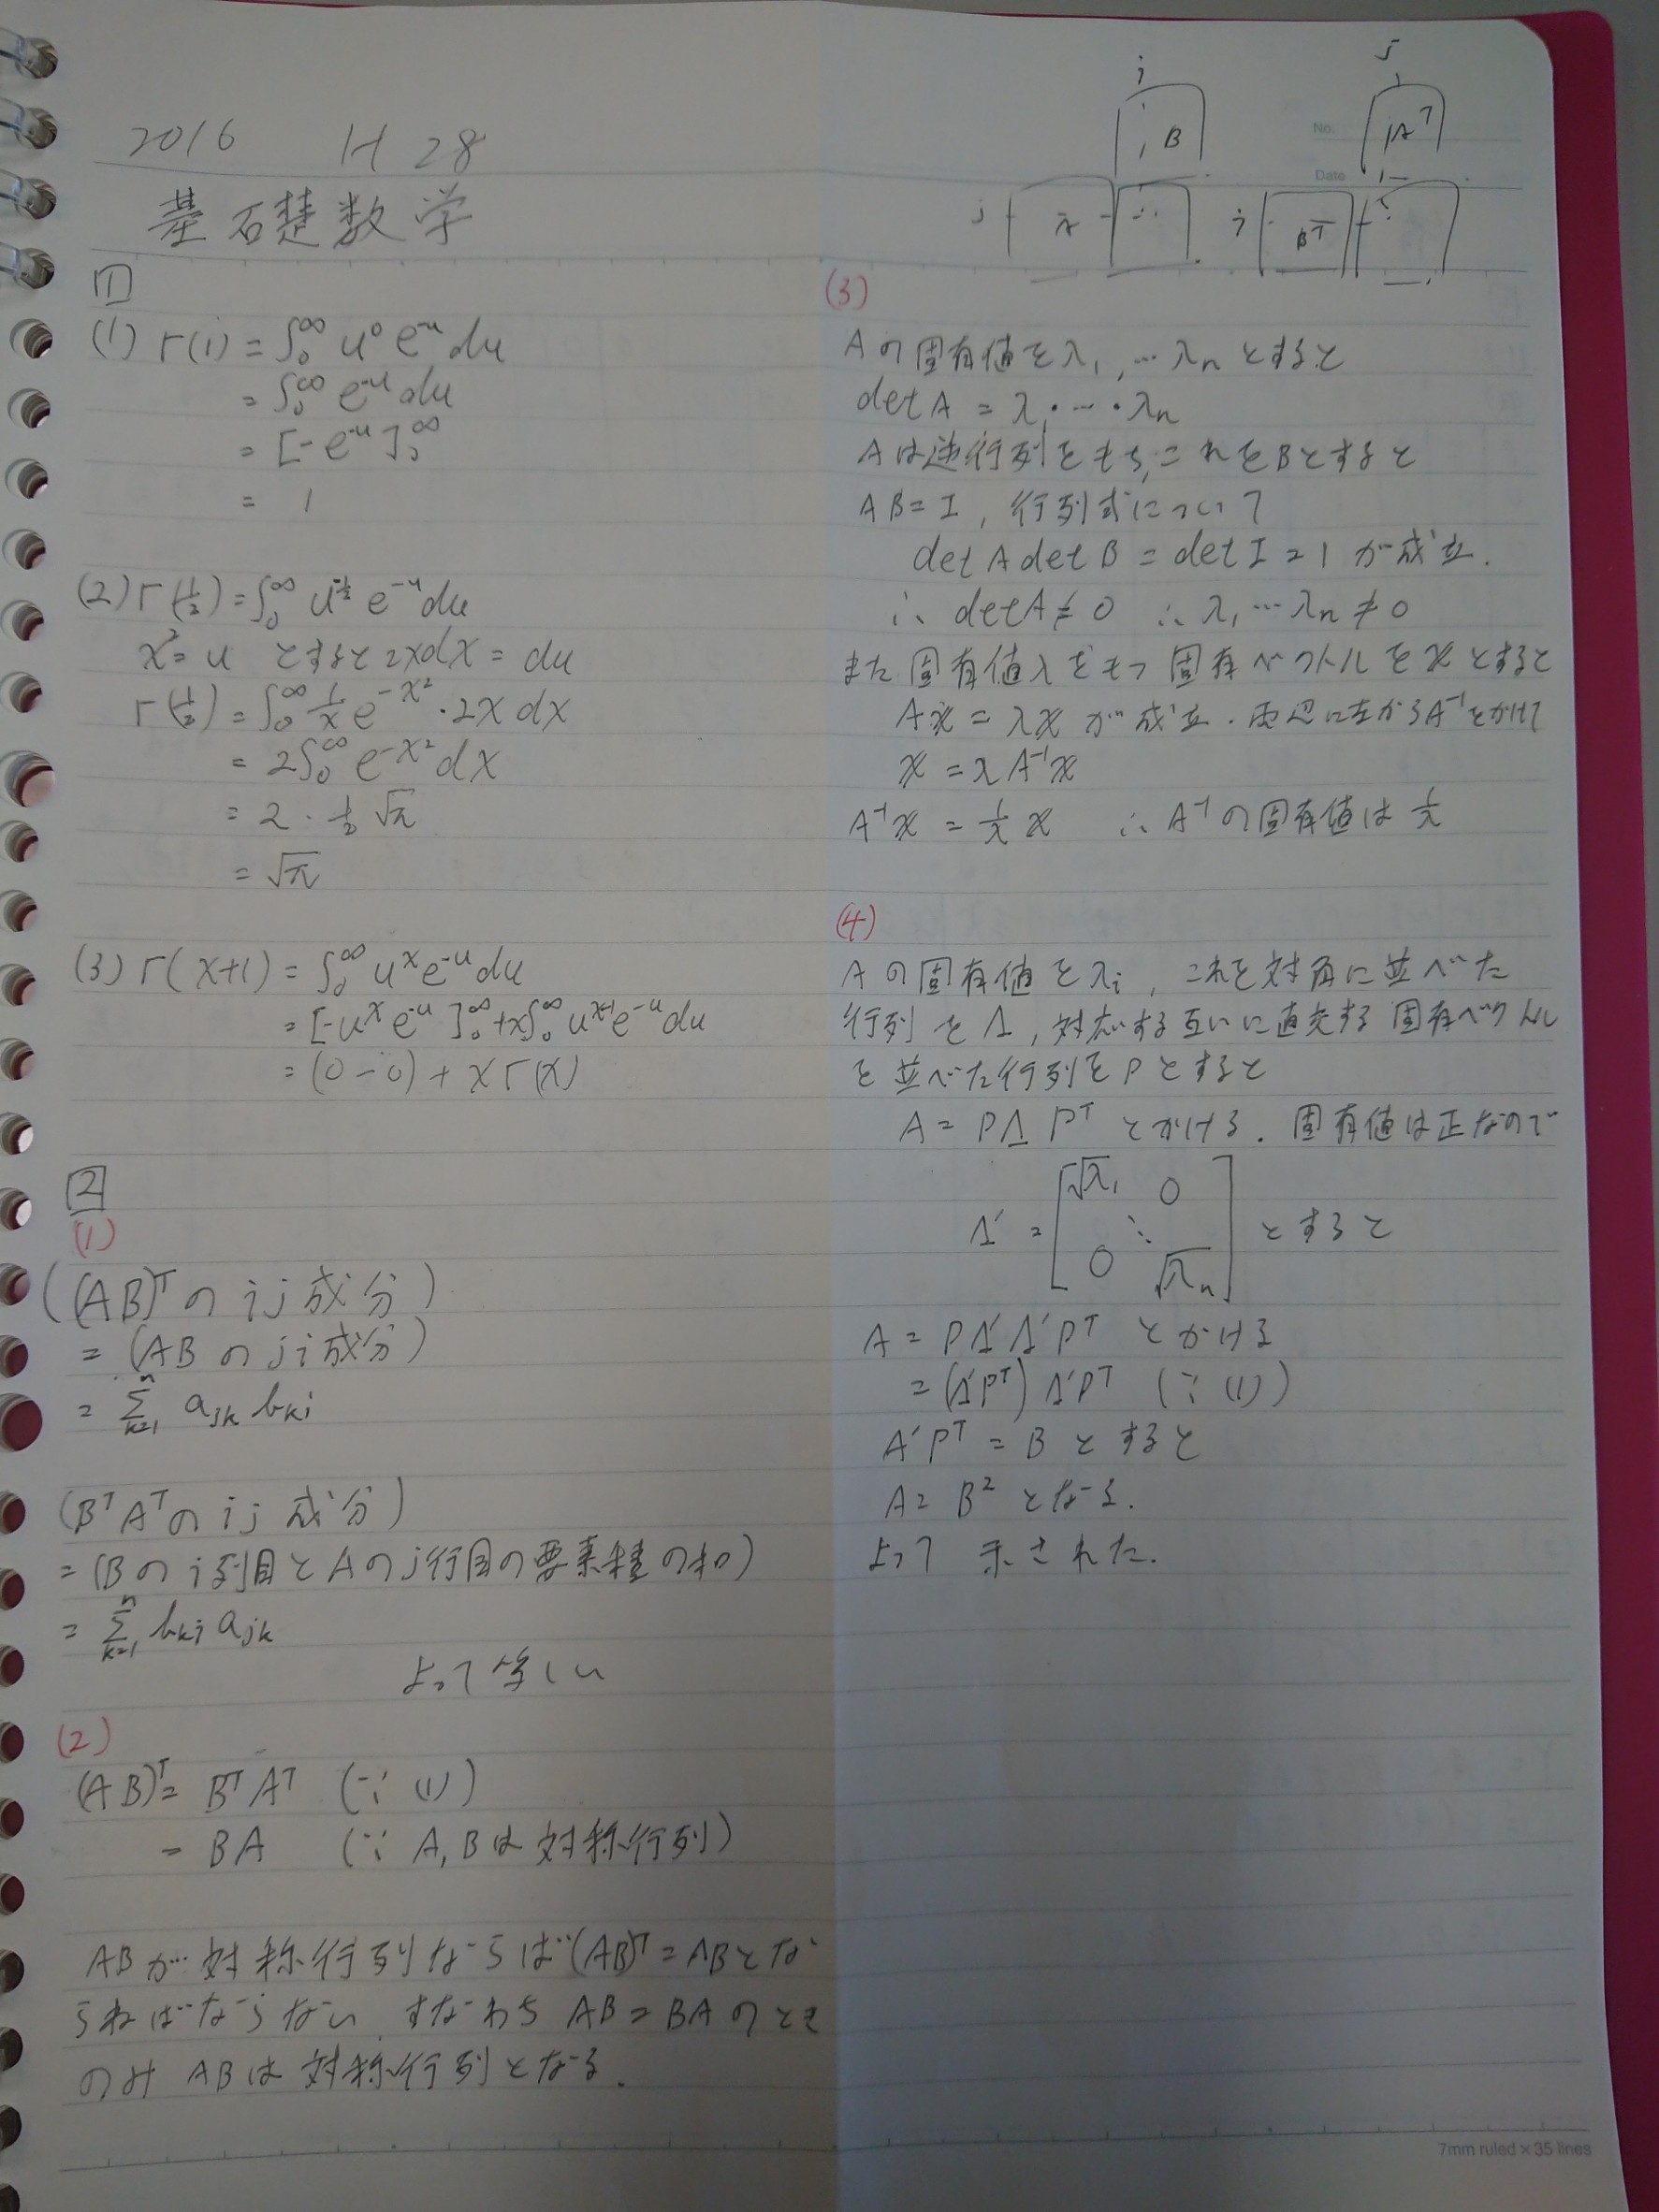 2016 H 28
基礎数学
1
(1) Γ(1) = ∫₀^∞ u⁰ e⁻ᵘ du
= ∫₀^∞ e⁻ᵘ du
= [-e⁻ᵘ]₀^∞
= 1
(2) Γ(1/2) = ∫₀^∞ u^(-1/2) e⁻ᵘ du
x² = u とすると 2xdx = du
Γ(1/2) = ∫₀^∞ 1/x e^(-x²)・2x dx
= 2∫₀^∞ e^(-x²) dx
= 2・1/2 √π
= √π
(3) Γ(x+1) = ∫₀^∞ uˣ e⁻ᵘ du
= [-uˣ e⁻ᵘ]₀^∞ + x∫₀^∞ u^(x-1) e⁻ᵘ du
= (0-0) + xΓ(x)
2
(1)
((AB)ᵀの ij成分)
= (ABの ji成分)
= Σ_(k=1)^n a_jk b_ki
(BᵀAᵀの ij 成分)
= (Bの i列目とAのj行目の要素積の和)
= Σ_(k=1)^n b_ki a_jk
よって等しい
(2)
(AB)ᵀ = Bᵀ Aᵀ (∵ (1))
= BA (∵ A, Bは対称行列)
ABが対称行列ならば(AB)ᵀ = ABとな
らねばならない. すなわち AB = BA のとき
のみ ABは対称行列となる.
i j
B Aᵀ
No.
Date
j A i Bᵀ
(3)
Aの固有値をλ₁, … λₙ とすると
det A = λ₁・…・λₙ
Aは逆行列をもち, これをBとすると
AB = I, 行列式について
det A det B = det I = 1 が成立.
∴ det A ≠ 0 ∴ λ₁ … λₙ ≠ 0
また固有値λをもつ固有ベクトルをxとすると
Ax = λx が成立. 両辺に左からA⁻¹をかけて
x = λA⁻¹x
A⁻¹x = 1/λ x ∴ A⁻¹の固有値は 1/λ
(4)
Aの固有値をλᵢ, これを対角に並べた
行列をΛ, 対応する互いに直交する固有ベクトル
を並べた行列をPとすると
A = PΛPᵀ とかける. 固有値は正なので
Λ' = [√λ₁ 0 ⋱ 0 √λₙ] とすると
A = PΛ'Λ'Pᵀ とかける
= (Λ'Pᵀ) Λ'Pᵀ (∵ (1))
Λ'Pᵀ = B とすると
A = B² となる.
よって 示された.
7mm ruled × 35 lines